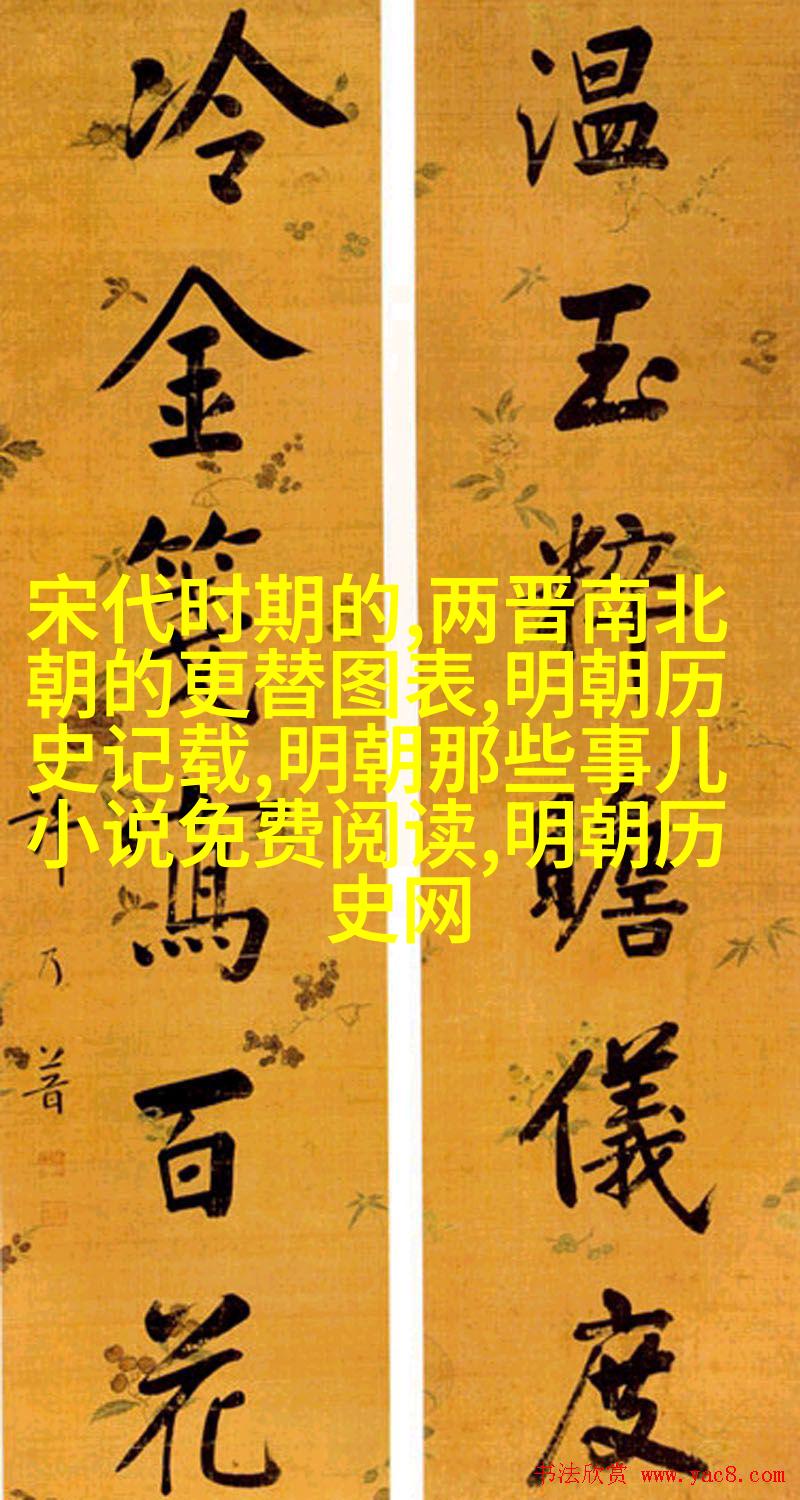 温玉粹瞻儀度
冷金箋寫百花
許乃普
宋代时期的,两晋南北
朝的更替图表,明朝历
史记载,明朝那些事儿
小说免费阅读,明朝历
史网
书法欣赏 www.yac8.com